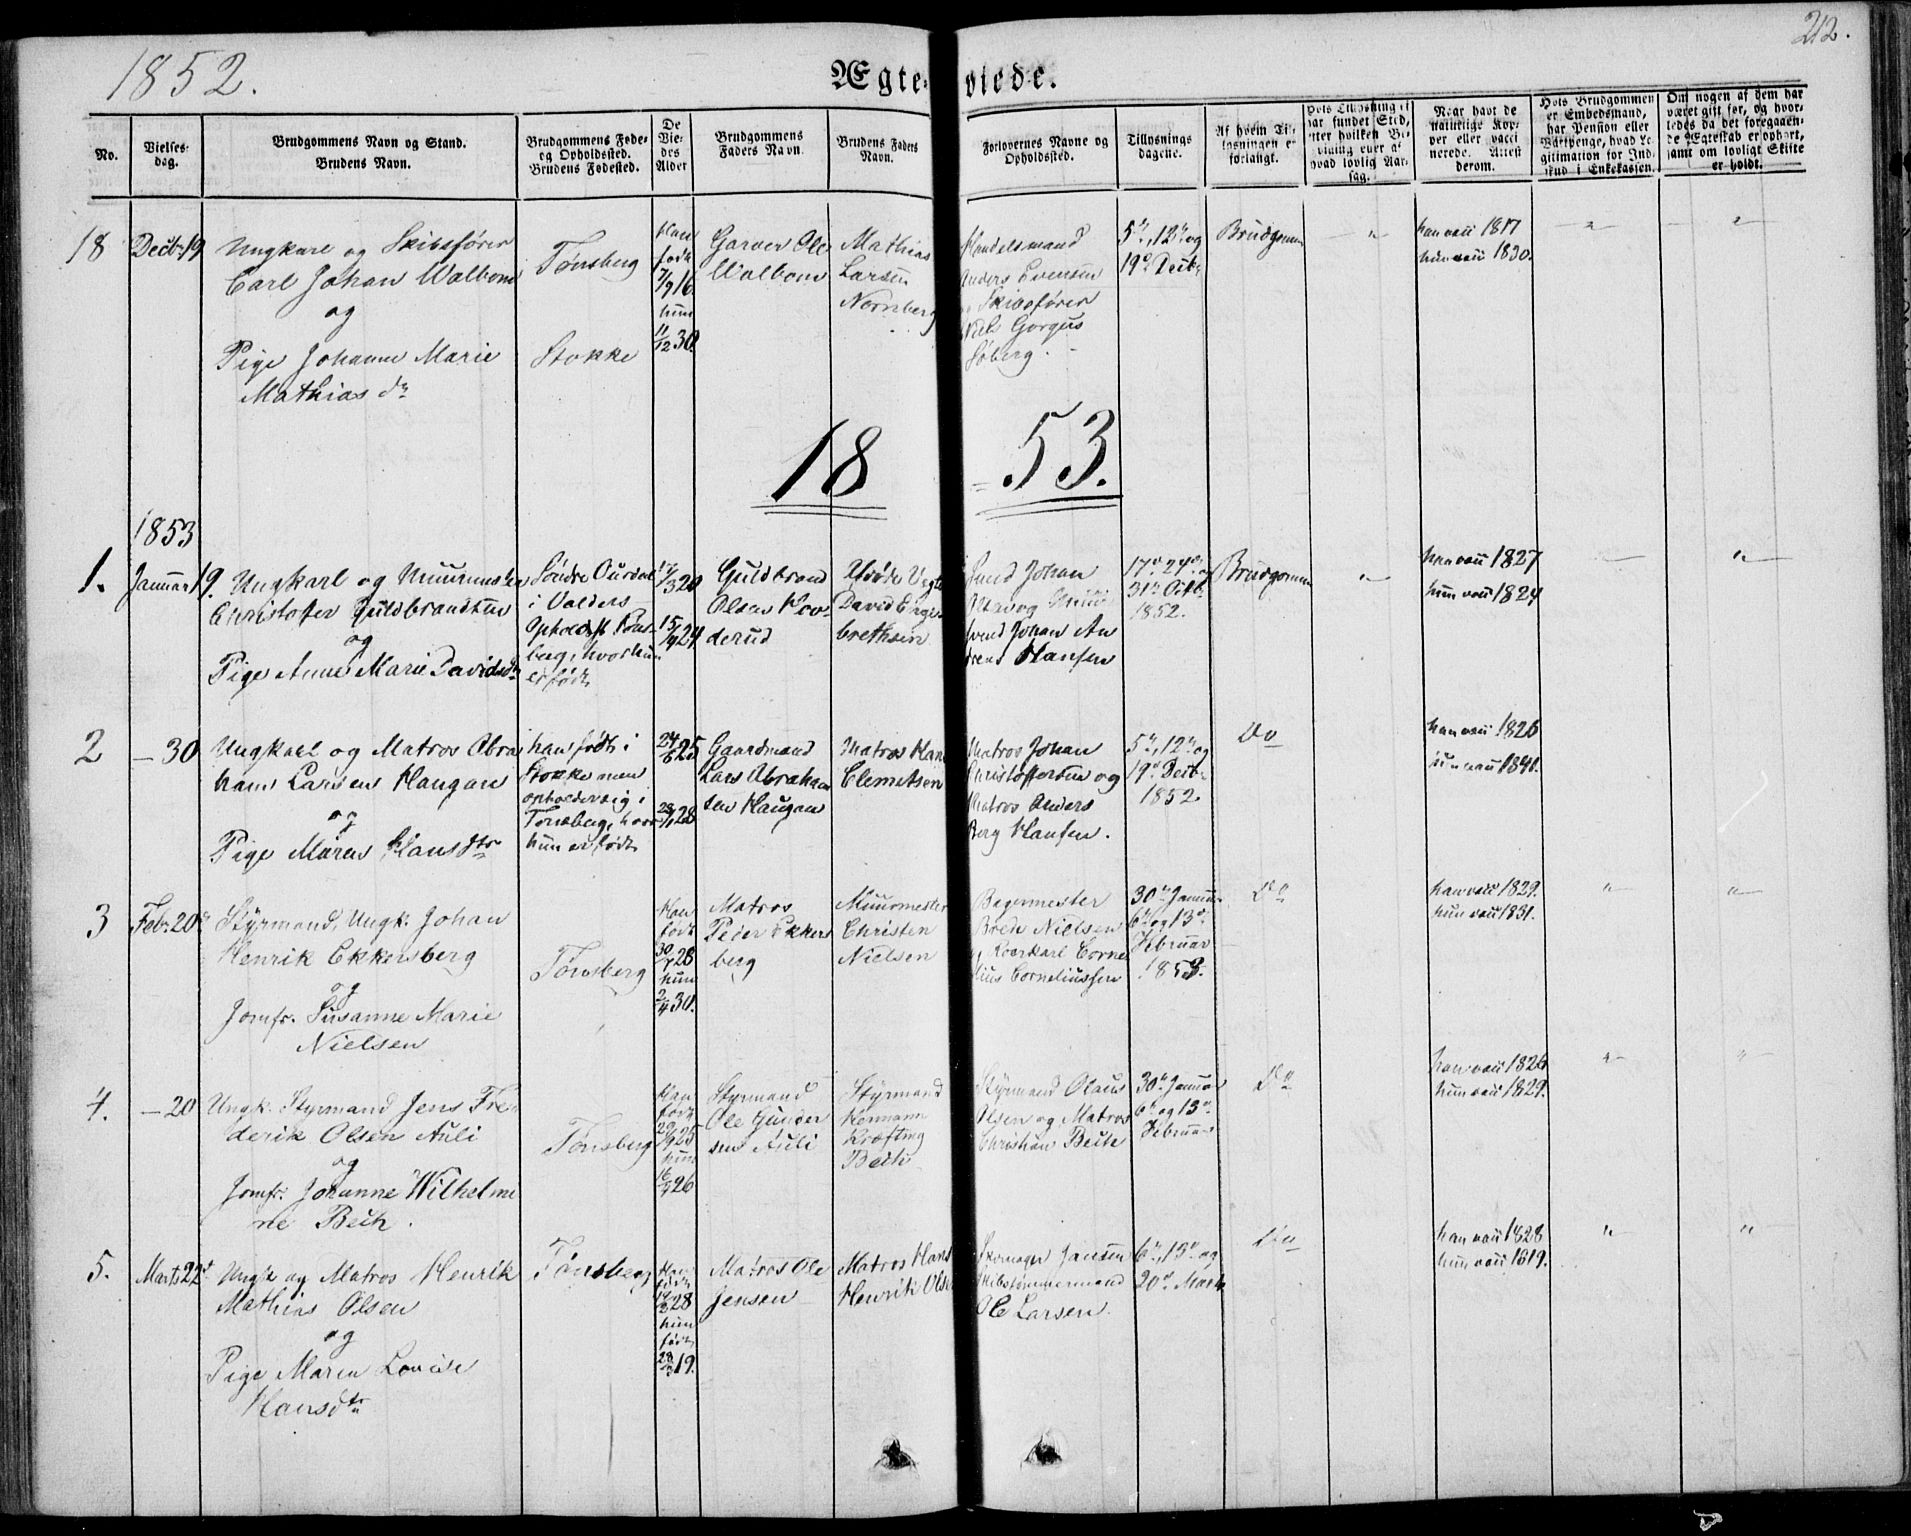 1852.
212.
Ægteviede.
No.
Vielses-
dag.
Brudgommens Navn og Stand.
Brudens Navn.
Brudgommens Føde-
og Opholdssted.
Brudens Fødested.
De
Vie-
des
Alder
Brudgommens
Faders Navn.
Brudens Faders
Navn.
Forlovernes Navne og
Opholdssted.
Tillysnings
dagene.
Af hvem Til-
lysningen er
forlangt.
Hvis Tillysning ei
har fundet Sted,
efter hvilken Be-
villing eller af
hvad lovlig Aar-
sag.
Naar havt de
naturlige Kop-
per eller vacci-
nerede. Attest
derom.
Hvis Brudgommen
er Embedsmand,
har Pension eller
Vartpenge, hvad Le-
gitimation for Ind-
skud i Enkekassen.
Om nogen af dem har
været gift før, og hvor-
ledes da det foregaaen-
de Ægteskab er ophørt,
samt om lovligt Skifte
er holdt.
18 Decbr 19
Ungkarl og Skibsfører
Carl Johan Walbom
og
Pige Johanne Marie
Mathias dr
Tønsberg
Stokke
Han
født
17/9 16.
hun
11/12 30.
Garver Ole
Walbom
Mathias
Larsen
Nornberg
Handelsmand
Anders Evensen
og Skibsfører
Niels Gorgus
Søberg.
5te, 12te og
19de Decbr
Brudgommen
han vacc 1817
hun vacc 1830.
18 53.
1853
1. Januar 19.
Ungkarl og Muurmester
Christoffer Guldbrandsen
og
Pige Anne Marie Davidsdr
Søndre Ourdal
i Valders
Opholdst Tøns-
berg, hvor hun
er født
17/3 20
15/9 24
Guldbrand
Olsen Hov-
derud
Afdøde Vegter
David Enge-
brethsen
Svend Johan
Svend Johan An
dreas Hansen
17de 24de og
31te Octb.
1852.
Brudgommen
han vacc 1827
hun vacc 1824
2 — 30
Ungkarl og Matros Abra
ham Larsen Haugan
og
Pige Maren Hansdtr
han født i
Stokke men
opholder sig i
Tønsberg, hvor
hun er født
24/6 25
28/11 28
Gaardmand
Lars Abraham
sen Haugan
Matros Hans
Clemetsen
Matros Johan
Christoffersen og
Matros Anders
Berg Hansen.
5te, 12te og
19de Decbr
1852.
Do
han vacc 1826
hun vacc 1841.
3 Febr 20de
Styrmand, Ungk. Johan
Henrik Ekkersberg
og
Jomfr. Susanne Marie
Nielsen
Tønsberg
Han
født
30/7 28
hun
2/4 30.
Matros
Peder Ekkers
berg
Muurmester
Christen
Nielsen
Bagermester
Brede Nielsen
og Koerkarl Corne
lius Corneliussen
30te Januar
6te og 13de
Februar
1853.
Do
han vacc 1829.
hun vacc 1831.
4. — 20
Ungk. Styrmand Jens Fre-
derik Olsen Auli
og
Jomfr. Johanne Wilhelmi
ne Bech.
Tønsberg
Han
født
29/9 25
hun
16/4 26
Styrmand
Ole Gunder
sen Auli
Styrmand
Hermann
Kræfting
Bech
Styrmand Olaus
Olsen og Matros
Christian Bech
30te Januar
6te og 13de
Februar
Do
han vacc 1826
hun vacc 1829.
5. Marts 22de
Ungk og Matros Henrik
Mathias Olsen
og
Pige Maren Lovise
Hansdtr
Tønsberg
Han
født
19/3 28
hun
født
28/3 19.
Matros Ole
Jensen
Matros Hans
Henrik Olsen
Skomager Jansen
Skibstømmermand
Ole Larsen.
6te, 13de og
20de Marts
Do
han vacc 1828
hun vacc 1819.